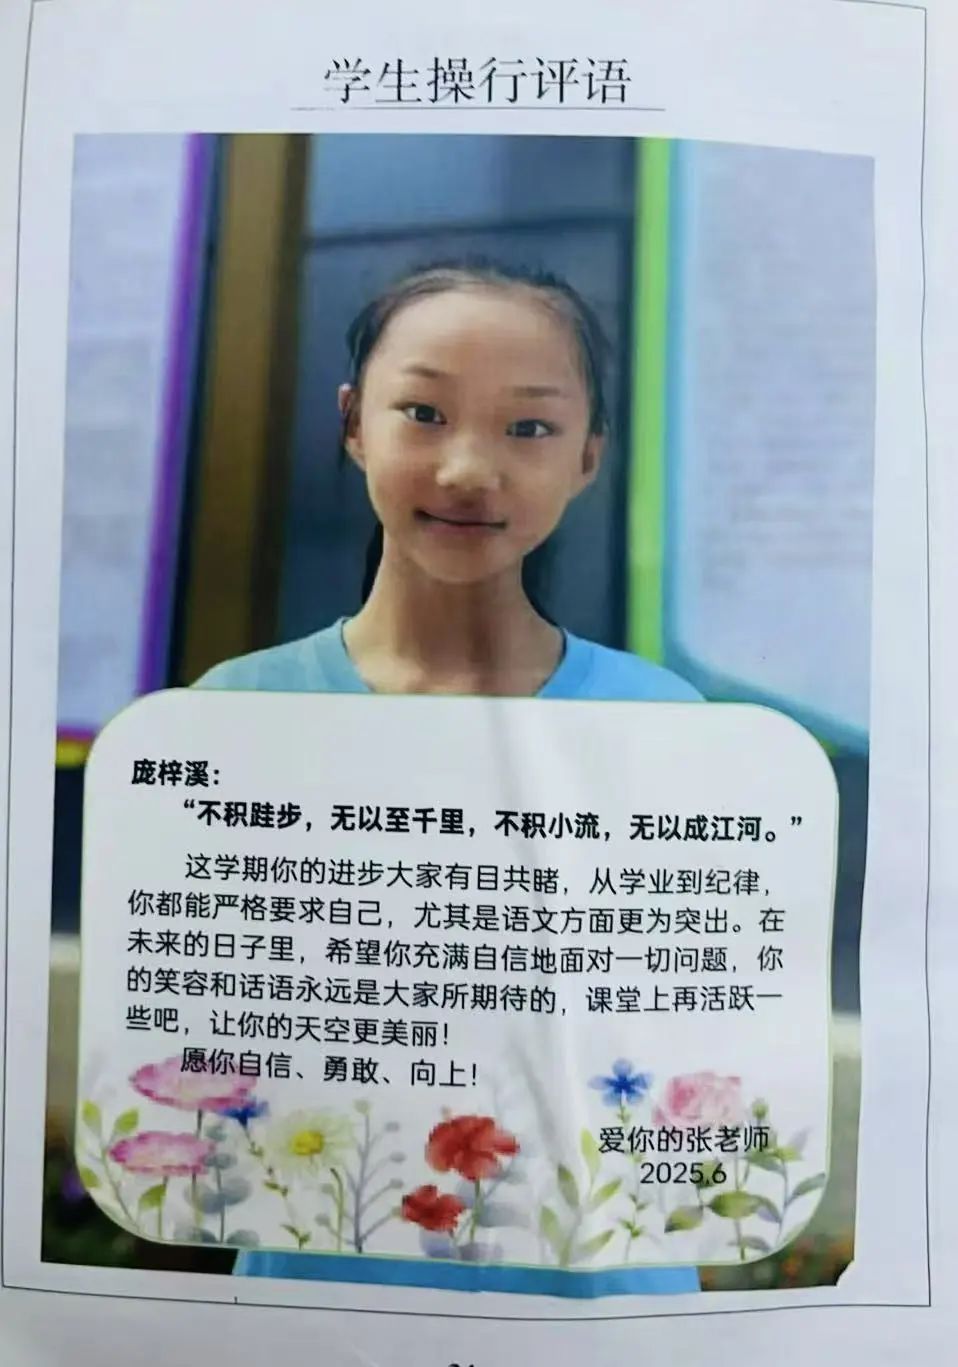 学生操行评语
庞梓溪：
“不积跬步，无以至千里，不积小流，无以成江河。”
这学期你的进步大家有目共睹，从学业到纪律，
你都能严格要求自己，尤其是语文方面更为突出。在
未来的日子里，希望你充满自信地面对一切问题，你
的笑容和话语永远是大家所期待的，课堂上再活跃一
些吧，让你的天空更美丽！
愿你自信、勇敢、向上！
爱你的张老师
2025,6